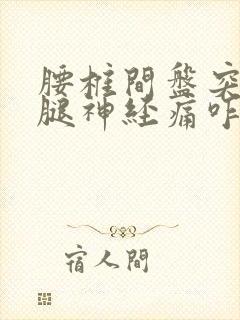 腰椎間盤突
腿神経痛咋
宿人間